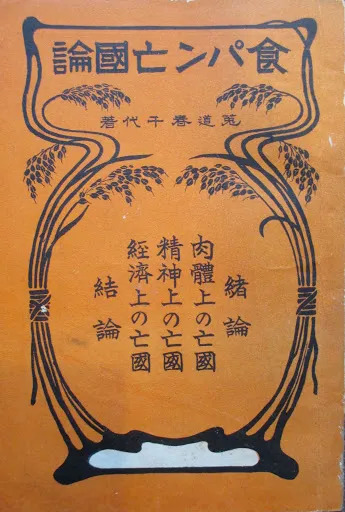 食パン亡國論
菟道春千代著
緒論
肉體上の亡國
精神上の亡國
經濟上の亡國
結論